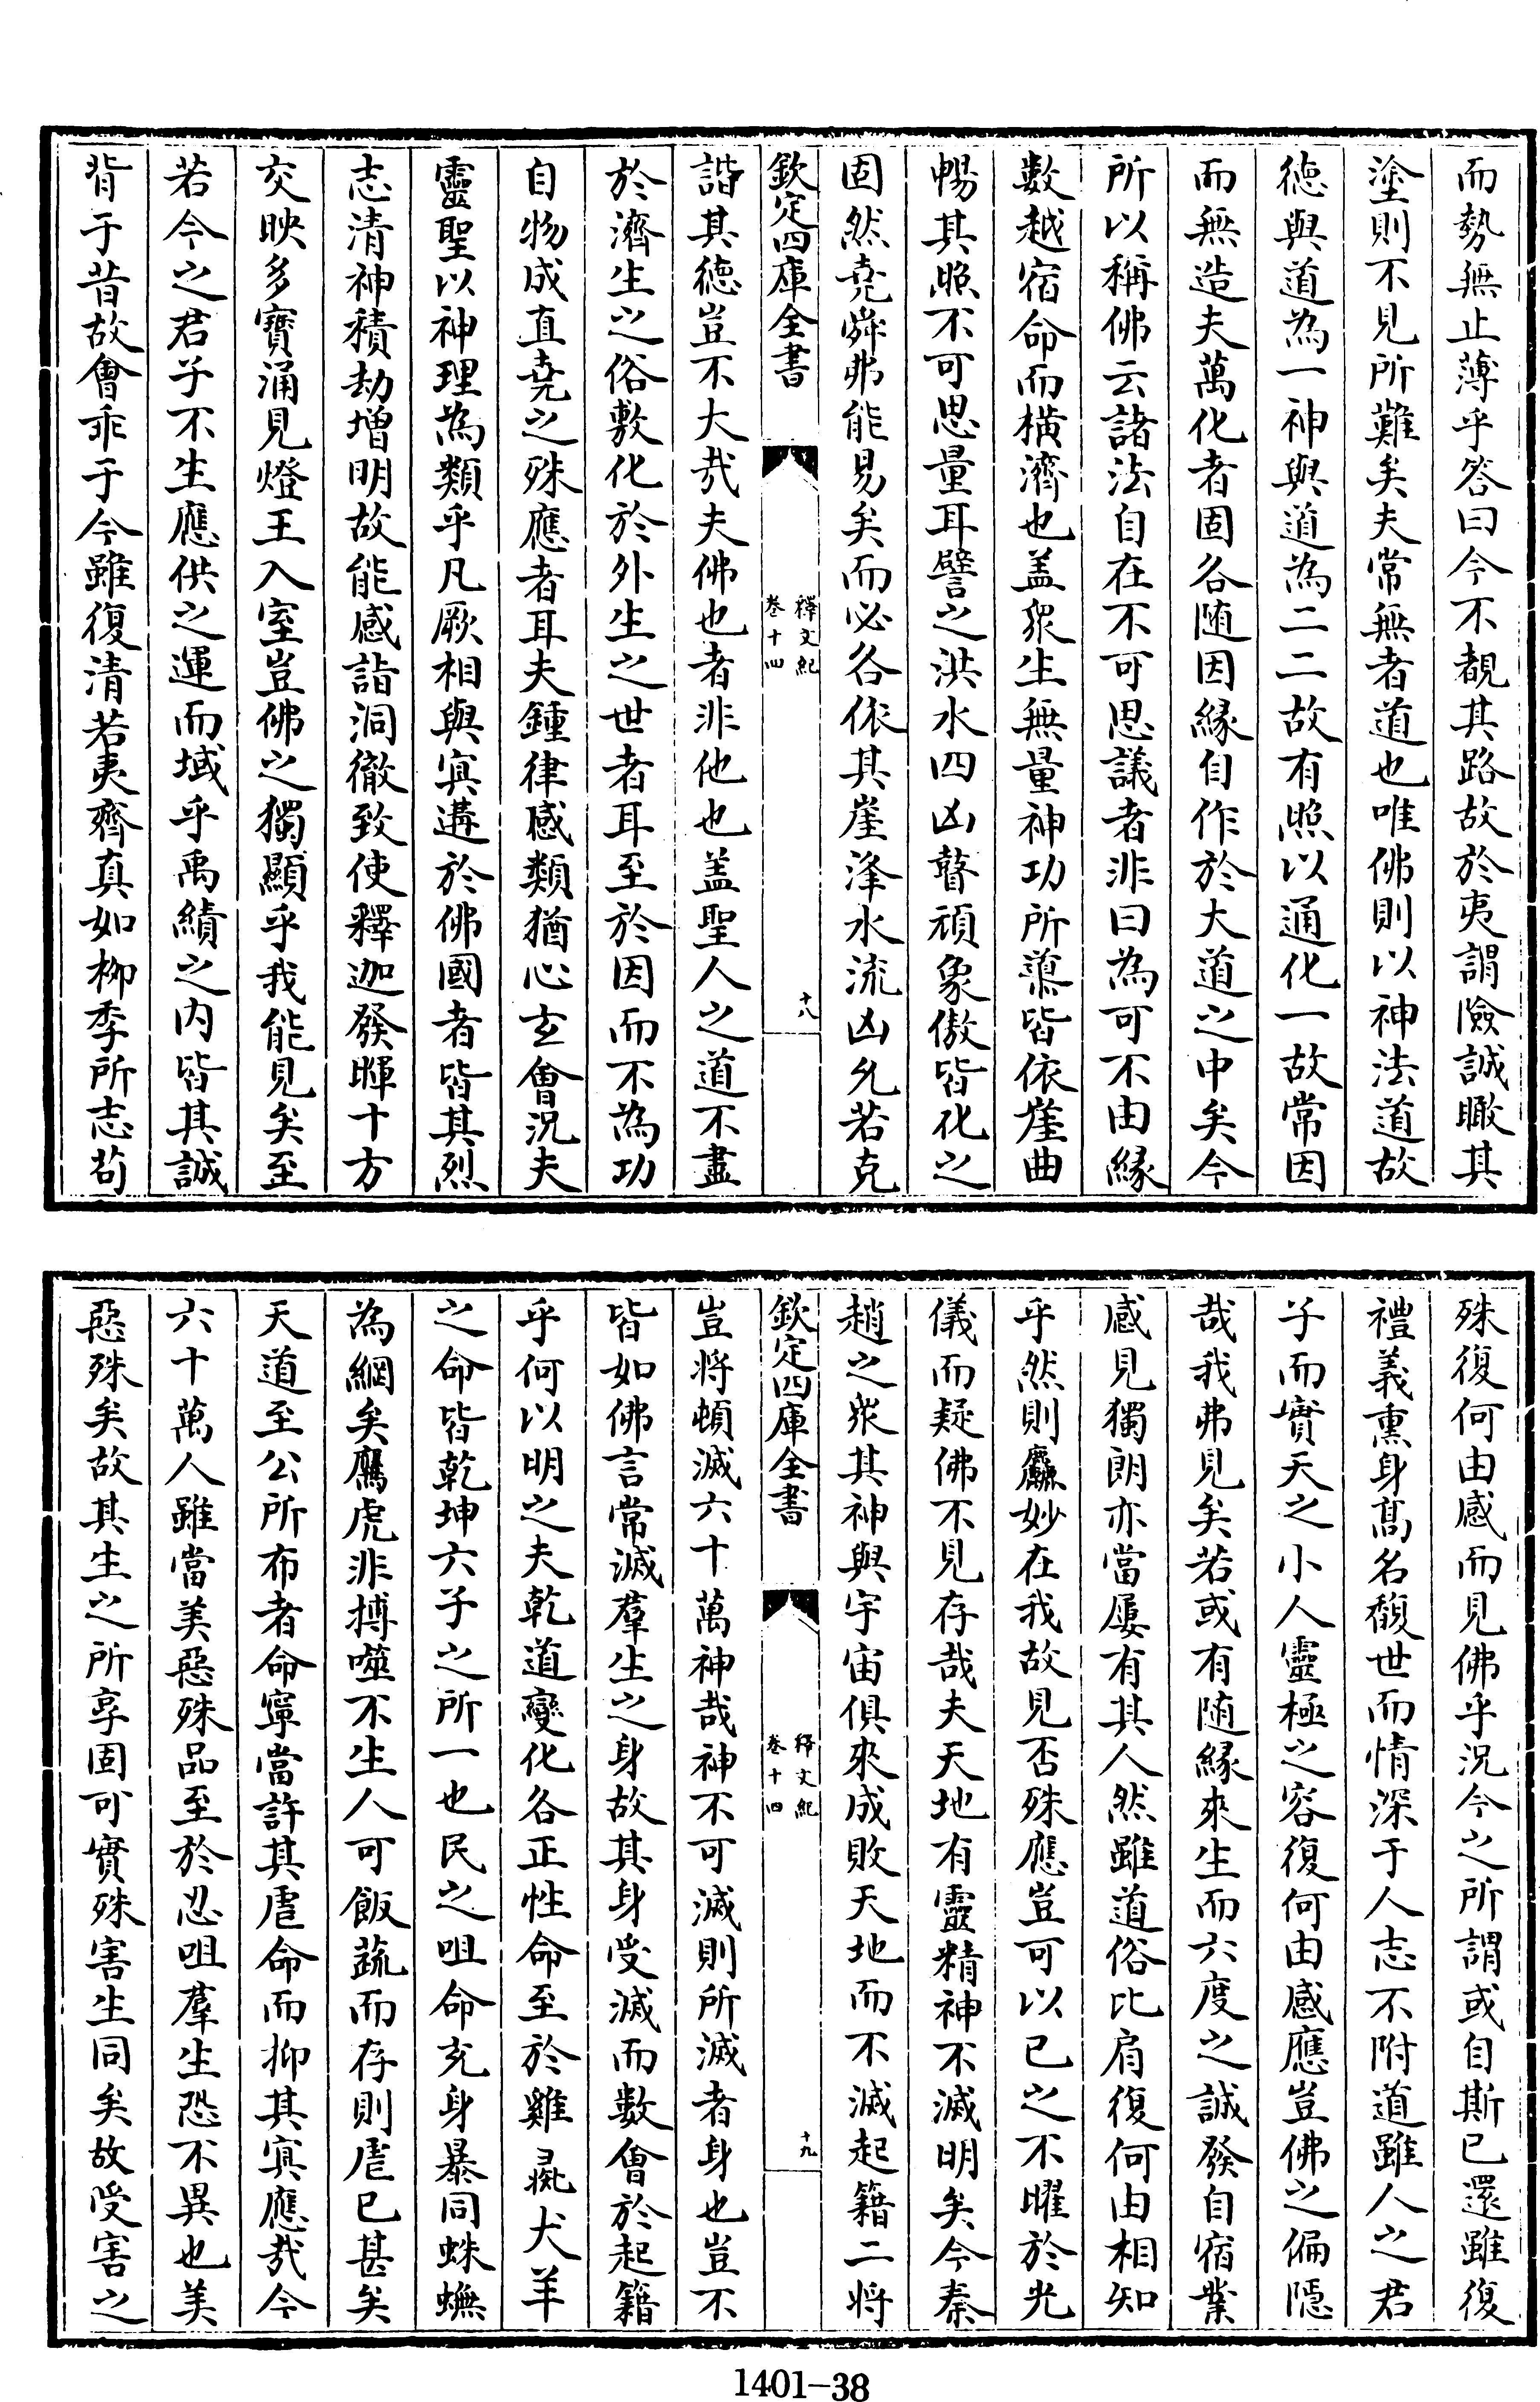 而勢無止薄乎答曰今不覩其路故於夷謂險誠瞰其
塗則不見所難矣夫常無者道也唯佛則以神法道故
徳與道為一神與道為二二故有照以通化一故常因
而無造夫萬化者固各随因緣自作於大道之中矣今
所以稱佛云諸法自在不可思議者非曰為可不由緣
數越宿命而橫濟也盖衆生無量神功所導皆依崖曲
暢其照不可思量耳譬之洪水四凶瞽頑象傲皆化之
固然堯舜弗能易矣而必各依其崖洚水流凶允若克
欽定四庫全書
釋文紀
卷十四
十八
諧其徳豈不大哉夫佛也者非他也盖聖人之道不盡
於濟生之俗敷化於外生之世者耳至於因而不為功
自物成直堯之殊應者耳夫鍾律感類猶心玄會況夫
靈聖以神理為類乎凡厥相與㝠遘於佛國者皆其烈
志清神積劫增明故能感詣洞徹致使釋迦發暉十方
交映多寶涌見燈王入室豈佛之獨顯乎我能見矣至
若今之君子不生應供之運而域乎禹績之内皆其誠
背于昔故㑹乖于今雖復清若夷齊真如柳季所志苟
殊復何由感而見佛乎況今之所謂或自斯已還雖復
禮義熏身髙名馥世而情深于人志不附道雖人之君
子而實天之小人靈極之容復何由感應豈佛之偏隱
哉我弗見矣若或有随緣來生而六度之誠發自宿業
感見獨朗亦當屢有其人然雖道俗比肩復何由相知
乎然則麤妙在我故見否殊應豈可以已之不曜於光
儀而疑佛不見存哉夫天地有靈精神不滅明矣今秦
趙之衆其神與宇宙俱來成敗天地而不滅起籍二將
欽定四庫全書
釋文紀
卷十四
十九
豈將頓滅六十萬神哉神不可滅則所滅者身也豈不
皆如佛言常滅羣生之身故其身受滅而數㑹於起籍
乎何以明之夫乾道變化各正性命至於雞彘犬羊
之命皆乾坤六子之所一也民之咀命充身暴同蛛蟱
為網矣鷹虎非搏噬不生人可飯蔬而存則虐已甚矣
天道至公所布者命寧當許其虐命而抑其㝠應哉今
六十萬人雖當美惡殊品至於忍咀羣生恐不異也美
惡殊矣故其生之所享固可實殊害生同矣故受害之
1401-38